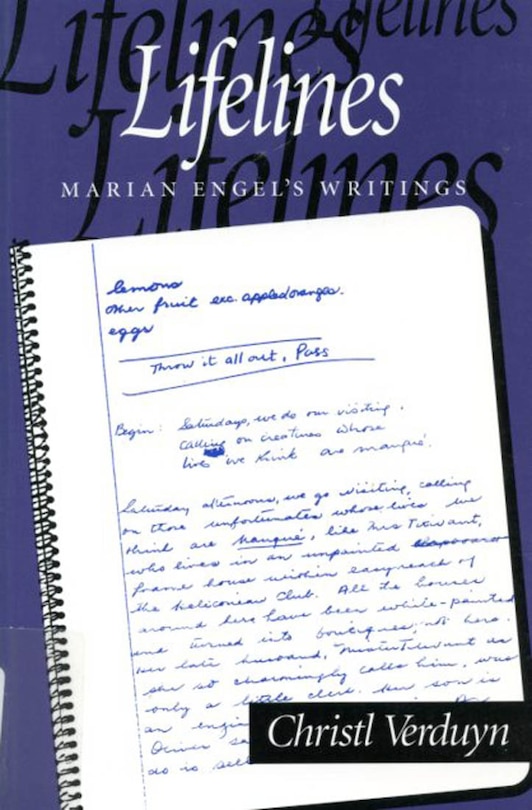 Lifelines
Lifelines
Lifelines
Lifelines
MARIAN ENGEL'S WRITINGS
lemons
other fruit exc. apples oranges.
eggs
Throw it all out, Pass
Begin: Saturdays, we do our visiting,
calling on creatures whose
lives we think are manqué.
Saturday afternoons, we go visiting, calling
on those unfortunates whose lives we
think are manqué, like Mrs Titivant,
who lives in an unpainted
frame house within easy reach of
the Heliconian Club. All the houses
around hers have been white-painted
and turned into boutiques, not hers.
Her late husband, as
she so charmingly calls him, was
only a little clerk. Her son is
an
Oliver
do is
Christl Verduyn